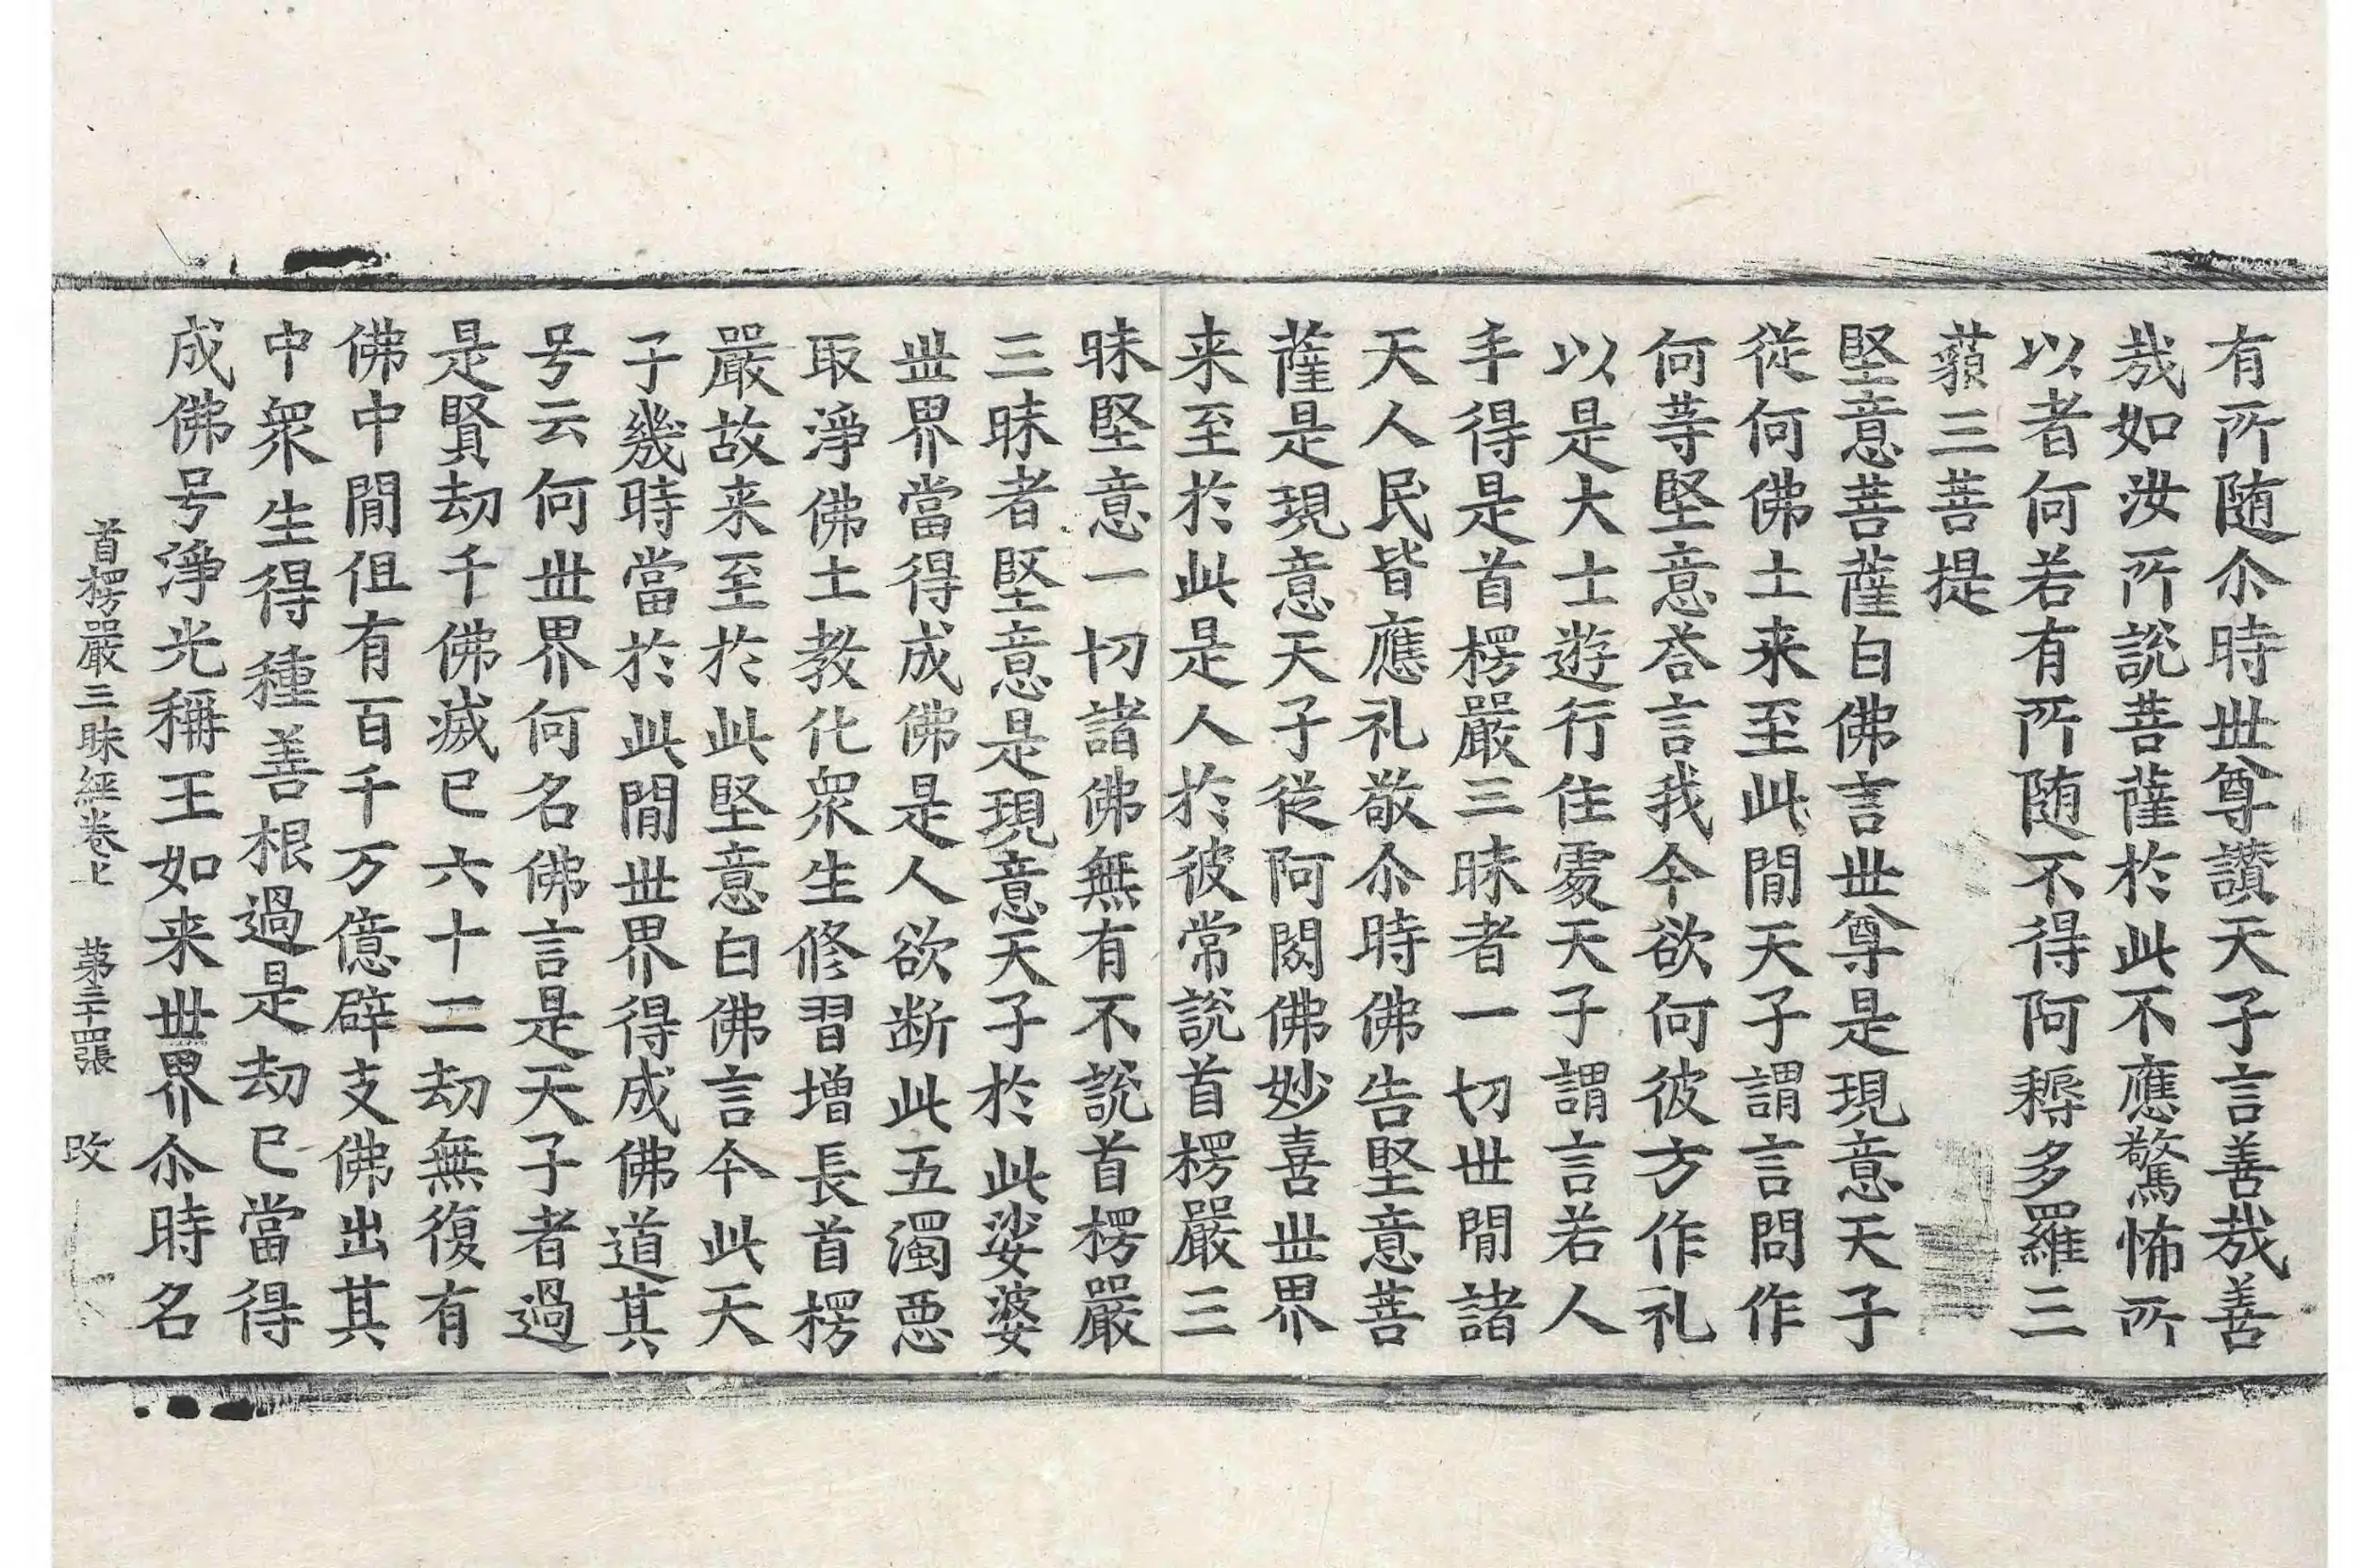 有所随尒時世尊讃天子言善哉善
哉如汝所說菩薩於此不應驚怖所
以者何若有所随不得阿耨多羅三
藐三菩提
堅意菩薩白佛言世尊是現意天子
從何佛土来至此閒天子謂言問作
何等堅意荅言我今欲何彼方作礼
以是大士遊行住處天子謂言若人
手得是首楞嚴三昧者一切世閒諸
天人民皆應礼敬尒時佛告堅意菩
薩是現意天子從阿閦佛妙喜世界
来至於此是人於彼常說首楞嚴三
昧堅意一切諸佛無有不說首楞嚴
三昧者堅意是現意天子於此娑婆
世界當得成佛是人欲断此五濁惡
取淨佛土教化衆生修習增長首楞
嚴故来至於此堅意白佛言今此天
子幾時當於此閒世界得成佛道其
号云何世界何名佛言是天子者過
是賢劫千佛滅已六十二劫無復有
佛中閒伹有百千万億辟支佛出其
中衆生得種善根過是劫已當得
成佛号淨光稱王如来世界尒時名
首楞嚴三昧經卷上 第三十四張 改